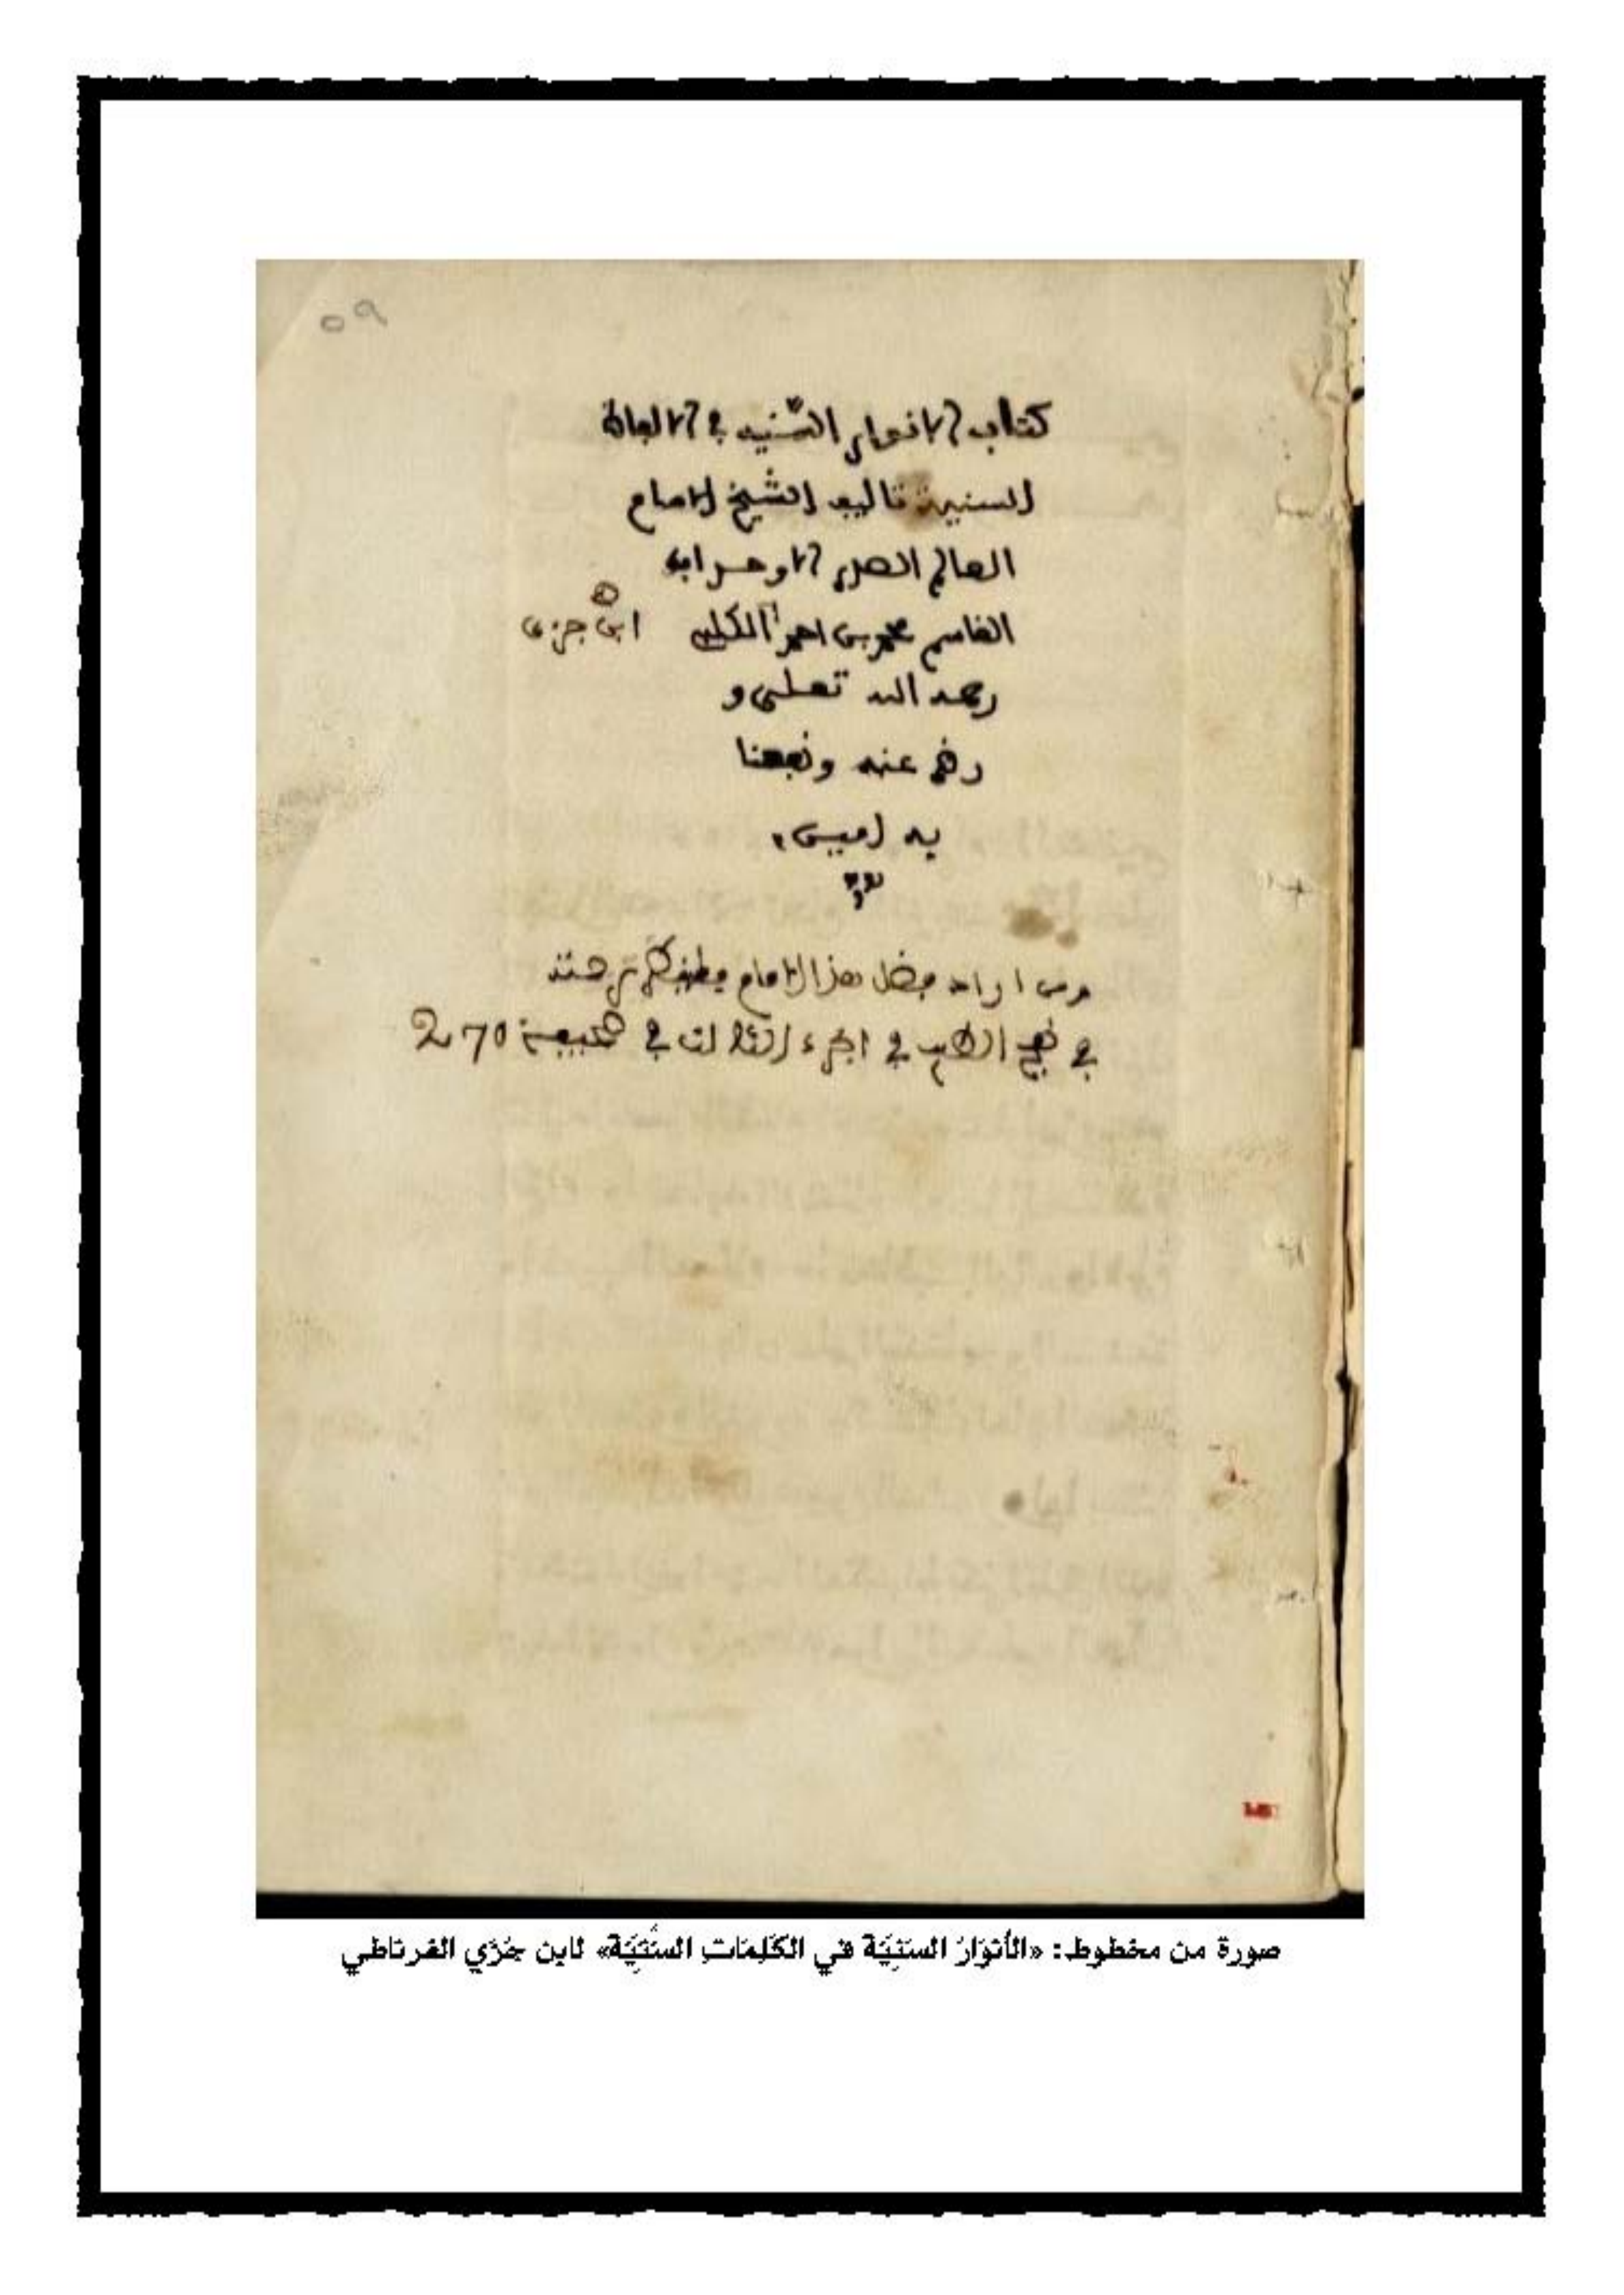 ٥٩
كتاب الانوار السنيه في الالفاظ
السنية تاليف الشيخ الامام
العالم الصدر الاوحد ابي
القاسم محمد بن احمد الكلبي ابن جزي
رحمه الله تعلى و
رضي عنه ونفعنا
به امين
ومن اراد فضل هذا الامام
في نفح الطيب في الجزء الثالث في صحيفة 270
صورة من مخطوط: «الأنوَارُ السَنِيَة في الكَلِمَاتِ السُنِّيَة» لابن جُزَي الغرناطي